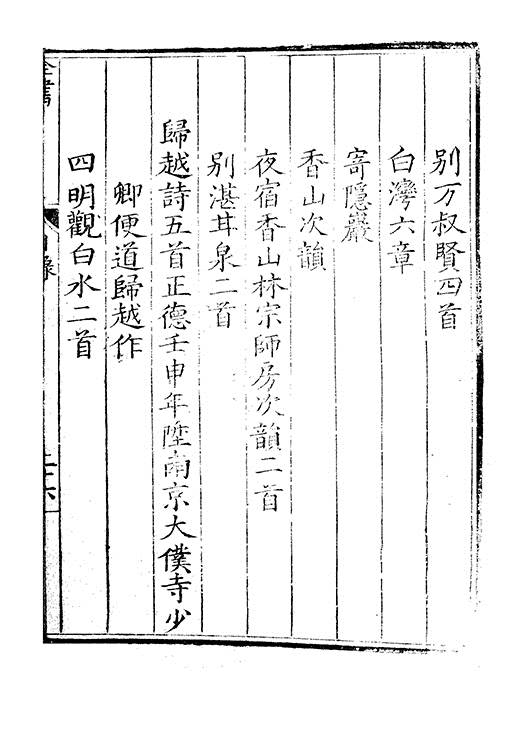 别万叔賢四首
白灣六章
寄隱巖
香山次韻
夜宿香山林宗師房次韻二首
别湛甘泉二首
歸越詩五首正德壬申年陞南京大僕寺少
卿便道歸越作
四明觀白水二首
全書
目錄